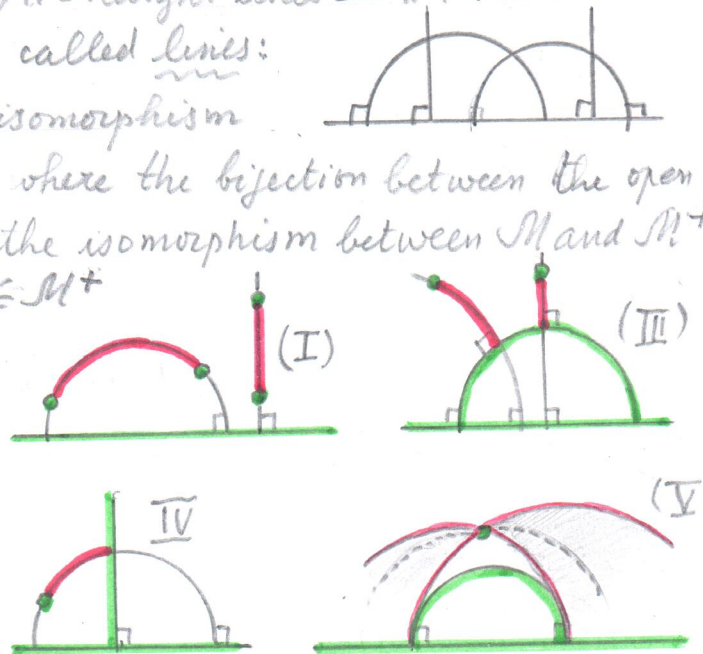 called lines:
isomorphism
where the bijection between the open
the isomorphism between M and M⁺
∈ M⁺
(I)
(III)
IV
(V